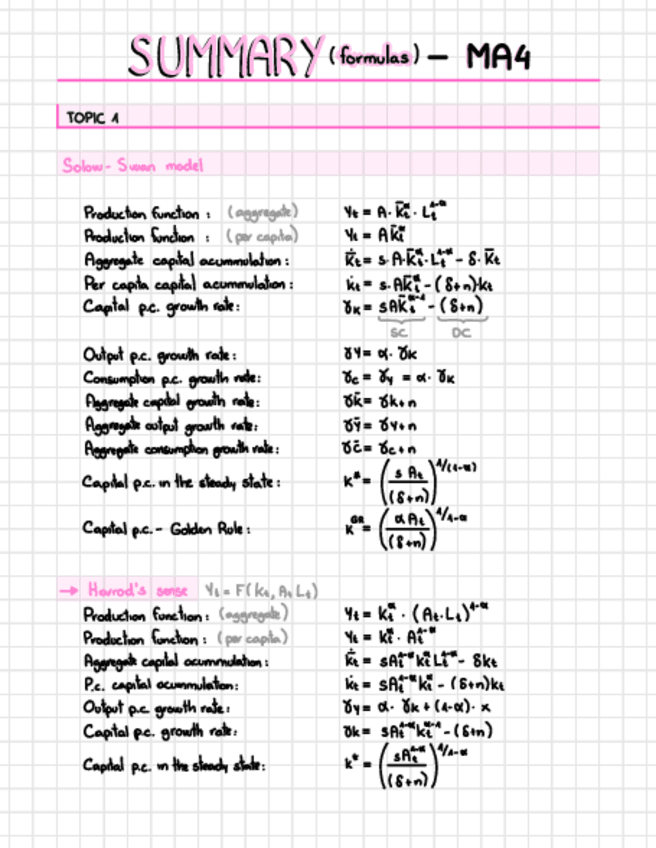 SUMMARY (formulas) – MA4
TOPIC 1
Solow-Swan model
Production function : (aggregate) Yt = A · K̄t^α · Lt^1-α
Production function : (per capita) Yt = A k̄t^α
Aggregate capital acummulation : K̄̇t = s · A · K̄t^α · Lt^1-α - δ · K̄t
Per capita capital acummulation : k̇t = s · A k̄t^α - (δ+n)kt
Capital p.c. growth rate: γK = sA k̄t^α-1 - (δ+n)
SC DC
Output p.c. growth rate: γY = α · γK
Consumption p.c. growth rate: γc = γy = α · γK
Aggregate capital growth rate: γK̄ = γk+n
Aggregate output growth rate: γȲ = γy+n
Aggregate consumption growth rate: γC̄ = γc+n
Capital p.c. in the steady state: K* = (s At / (δ+n))^1/(1-α)
Capital p.c. - Golden Rule : K^GR = (α At / (δ+n))^1/1-α
→ Harrod's sense Yt = F(Kt, At Lt)
Production function: (aggregate) Yt = kt^α · (At·Lt)^1-α
Production function: (per capita) Yt = kt^α · At^1-α
Aggregate capital acummulation: K̄̇t = sAt^1-α kt^α Lt^1-α - δkt
P.c. capital acummulation: k̇t = sAt^1-α kt^α - (δ+n)kt
Output p.c. growth rate: γy = α · γk + (1-α) · x
Capital p.c. growth rate: γk = sAt^1-α kt^α-1 - (δ+n)
Capital p.c. in the steady state: k* = (sAt^1-α / (δ+n))^1/1-α